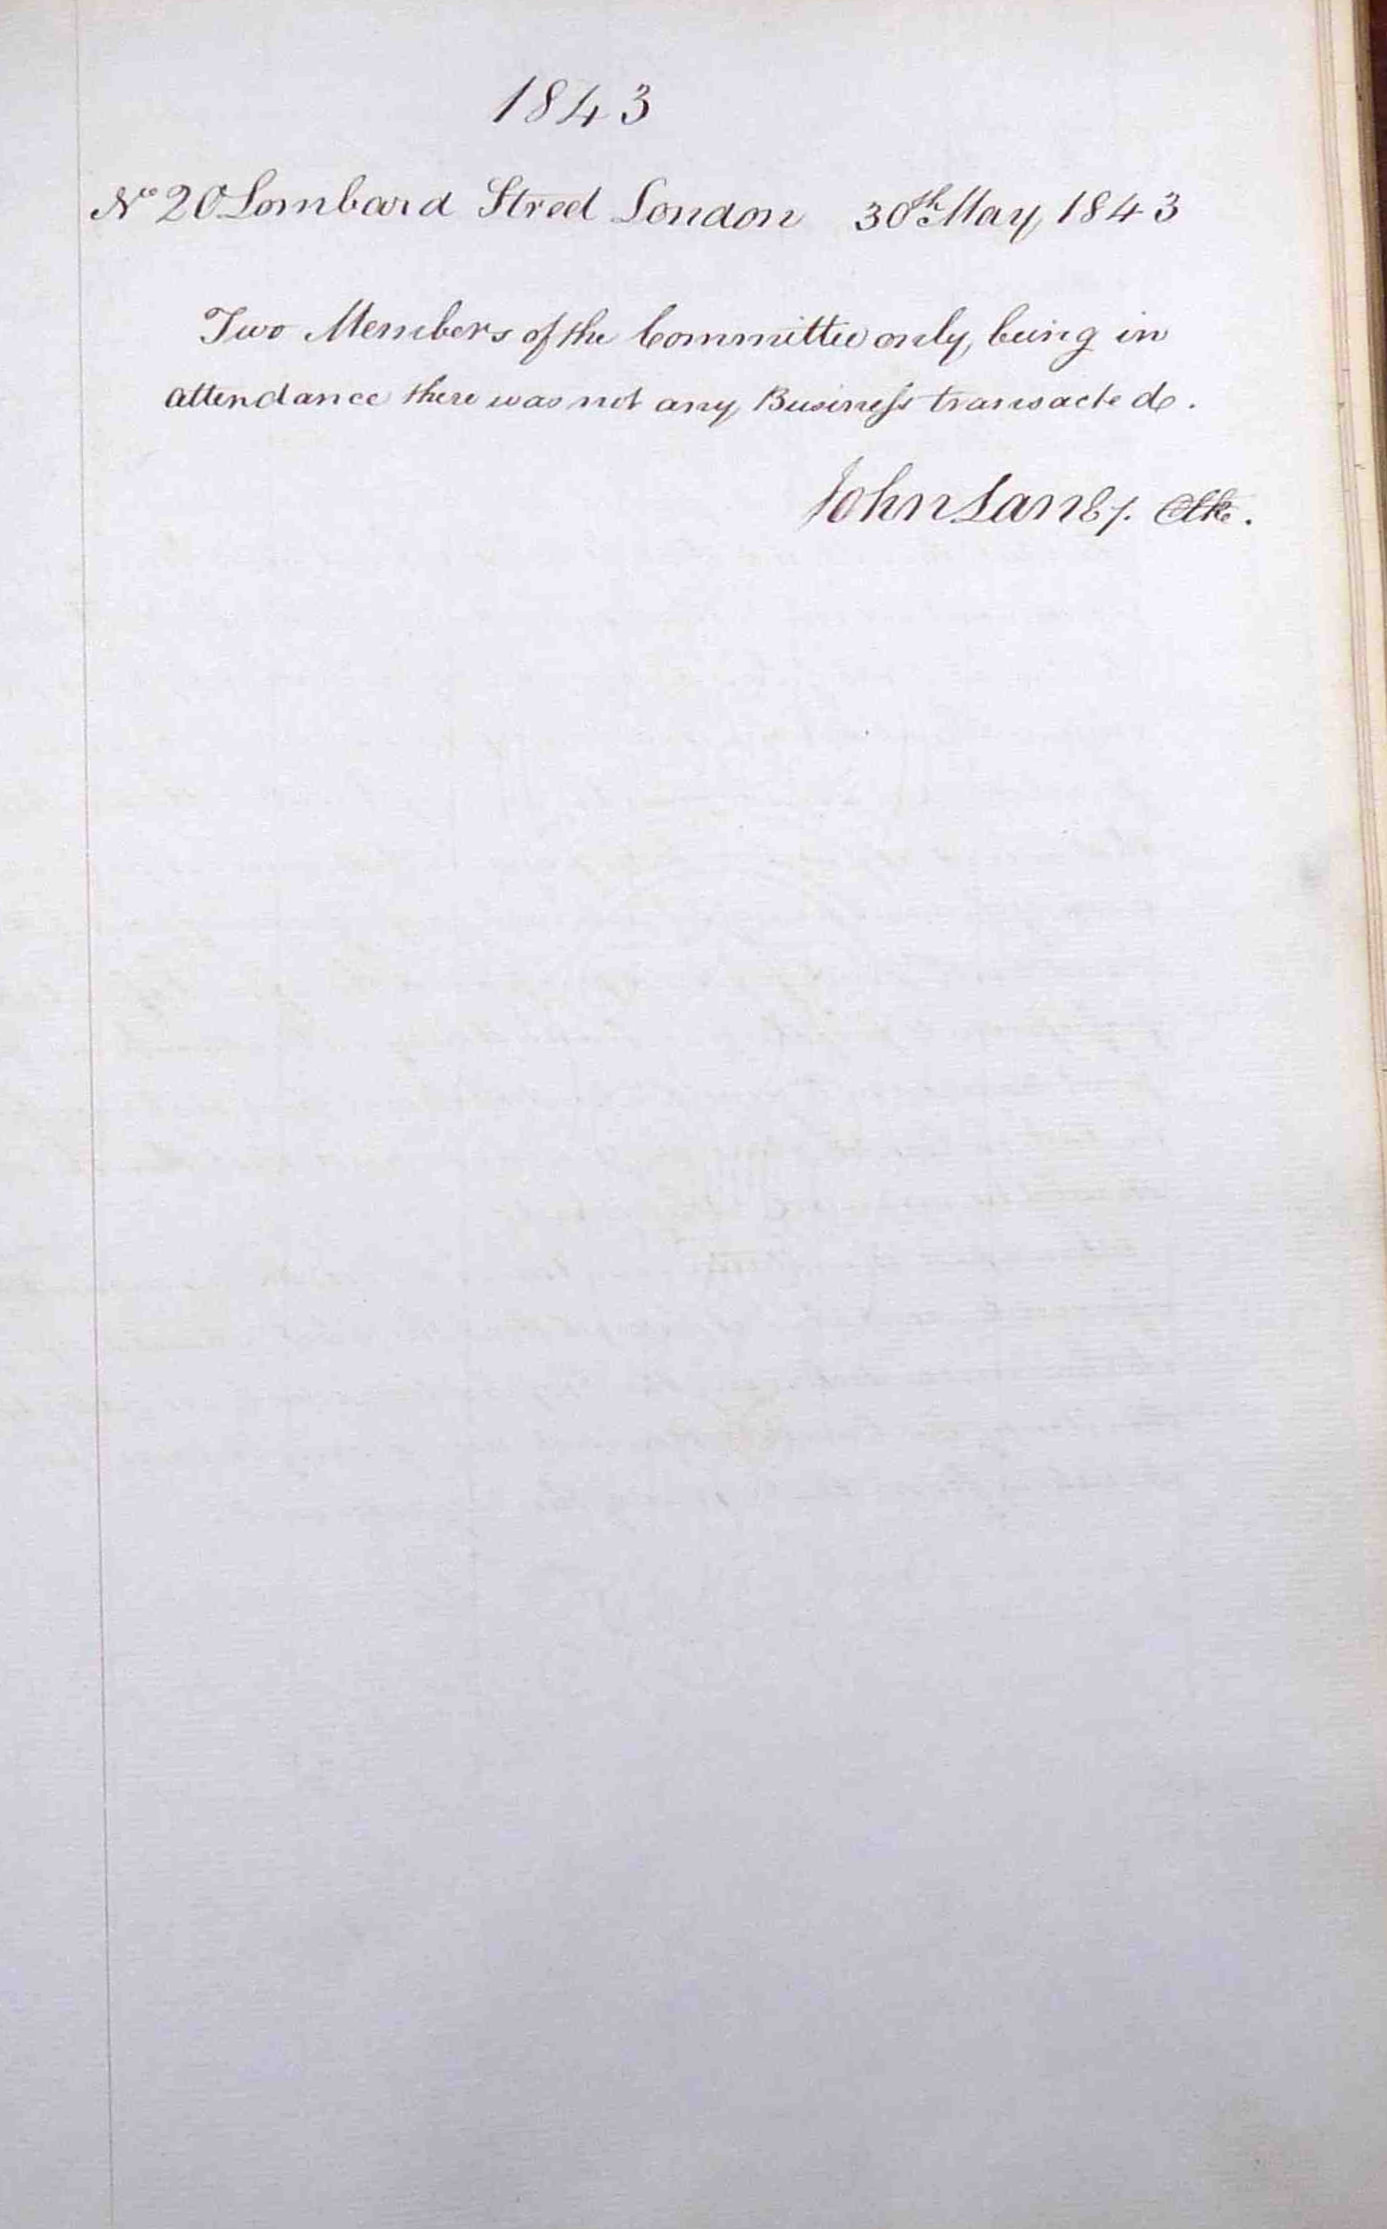 1843
No 20 Lombard Street London 30th May 1843
Two Members of the Committee only, being in
attendance there was not any Business transacted.
John Clk.